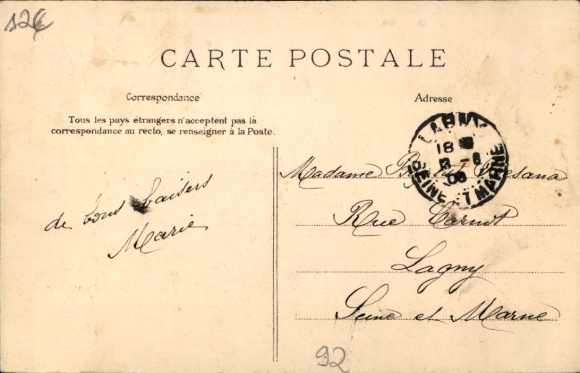 12€
CARTE POSTALE
Correspondance
Adresse
Tous les pays étrangers n'acceptent pas la
correspondance au recto, se renseigner à la Poste.
LAGNY
18
SEINE ET MARNE
de bons baisers
Marie
Madame
Rue Carnot
Lagny
Seine et Marne
92